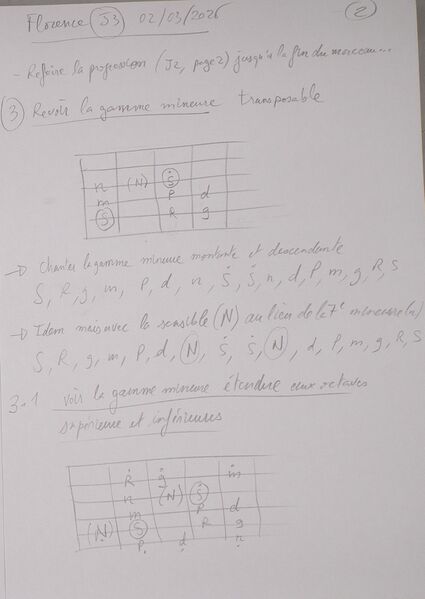 Florence (J3) 02/03/2026 (2)
- Refaire la progression (J2, page 2) jusqu'à la fin du morceau...
(3) Revoir la gamme mineure transposable
n (N) Ṡ
m P d
S R g
→ Chanter la gamme mineure montante et descendante
S, R, g, m, P, d, n, Ṡ, Ṡ, n, d, P, m, g, R, S
→ Idem mais avec la sensible (N) au lieu de la 7e mineure (n)
S, R, g, m, P, d, (N), Ṡ, Ṡ, (N), d, P, m, g, R, S
3-1 voir la gamme mineure étendue aux octaves
supérieure et inférieures
Ṙ ġ ṁ
n (N) Ṡ
m P d
(Ṇ) S R g
P̣ ḍ ṇ